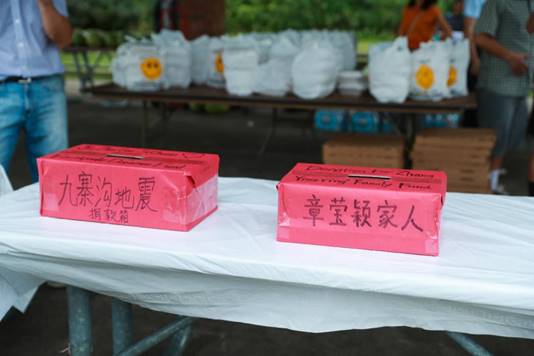 九寨沟地震
捐款箱
Donation For Zhang
Yingying Family Fund
章莹颖家人